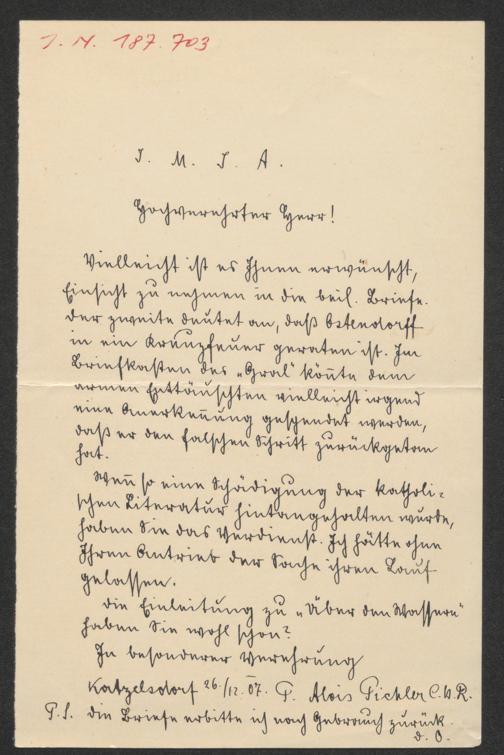 J. N. 187.703
J. M. J. A.
Hochverehrter Herr!
Vielleicht ist es Ihnen erwünscht,
Einsicht zu nehmen in die beil. Briefe.
Der zweite deutet an, daß Ostendorff
in ein Kreuzfeuer geraten ist. Im
Briefkasten des „Gral" könnte dem
armen Enttäuschten vielleicht irgend
eine Anerkennung gespendet werden,
daß er den falschen Schritt zurückgetan
hat.
Wenn so eine Schädigung der katholi-
schen Literatur hintangehalten wurde,
haben Sie das Verdienst. Ich hätte ohne
Ihren Antrieb der Sache ihren Lauf
gelassen.
Die Einleitung zu „Über den Wassern"
haben Sie wohl schon?
In besonderer Verehrung
Katzelsdorf 26./12.07. P. Alois Pichler C.Ss.R.
P.S. Die Briefe erbitte ich nach Gebrauch zurück.
d. O.